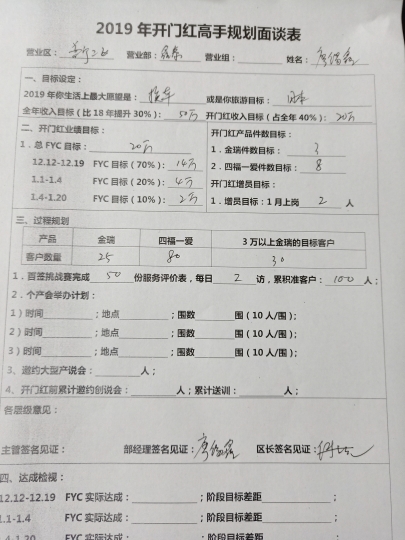 2019年开门红高手规划面谈表
营业区： 营业部： 营业组： 姓名：
一、目标设定：
2019年你生活上最大愿望是： 或是你旅游目标：日本
全年收入目标（比18年提升30%）：50万 开门红收入目标（占全年40%）：20万
二、开门红业绩目标： 开门红产品件数目标：
1．总FYC目标：20万 1．金瑞件数目标：3
12.12-12.19 FYC目标（70%）：14万 2．四福一爱件数目标：8
1.1-1.4 FYC目标（20%）：4万 开门红增员目标：
1.4-1.20 FYC目标（10%）：2万 1．增员目标：1月上岗 2 人
三、过程规划
产品 金瑞 四福一爱 3万以上金瑞的目标客户
客户数量 25 80 30
1．百签挑战赛完成 50 份服务评价表，每日 2 访，累积准客户：100 人；
2．个产会举办计划：
1）时间 ；地点 ；围数 围（10人/围）；
2）时间 ；地点 ；围数 围（10人/围）；
3）时间 ；地点 ；围数 围（10人/围）；
3、邀约大型产说会： 人；
4、开门红前累计邀约创说会： 人；累计送训： 人；
各层级意见：
主管签名见证： 部经理签名见证： 区长签名见证：
四、达成检视：
12.12-12.19 FYC实际达成： ；阶段目标差距 ；
1.1-1.4 FYC实际达成： ；阶段目标差距 ；
1.4-1.20 FYC实际达成： ；阶段目标差距